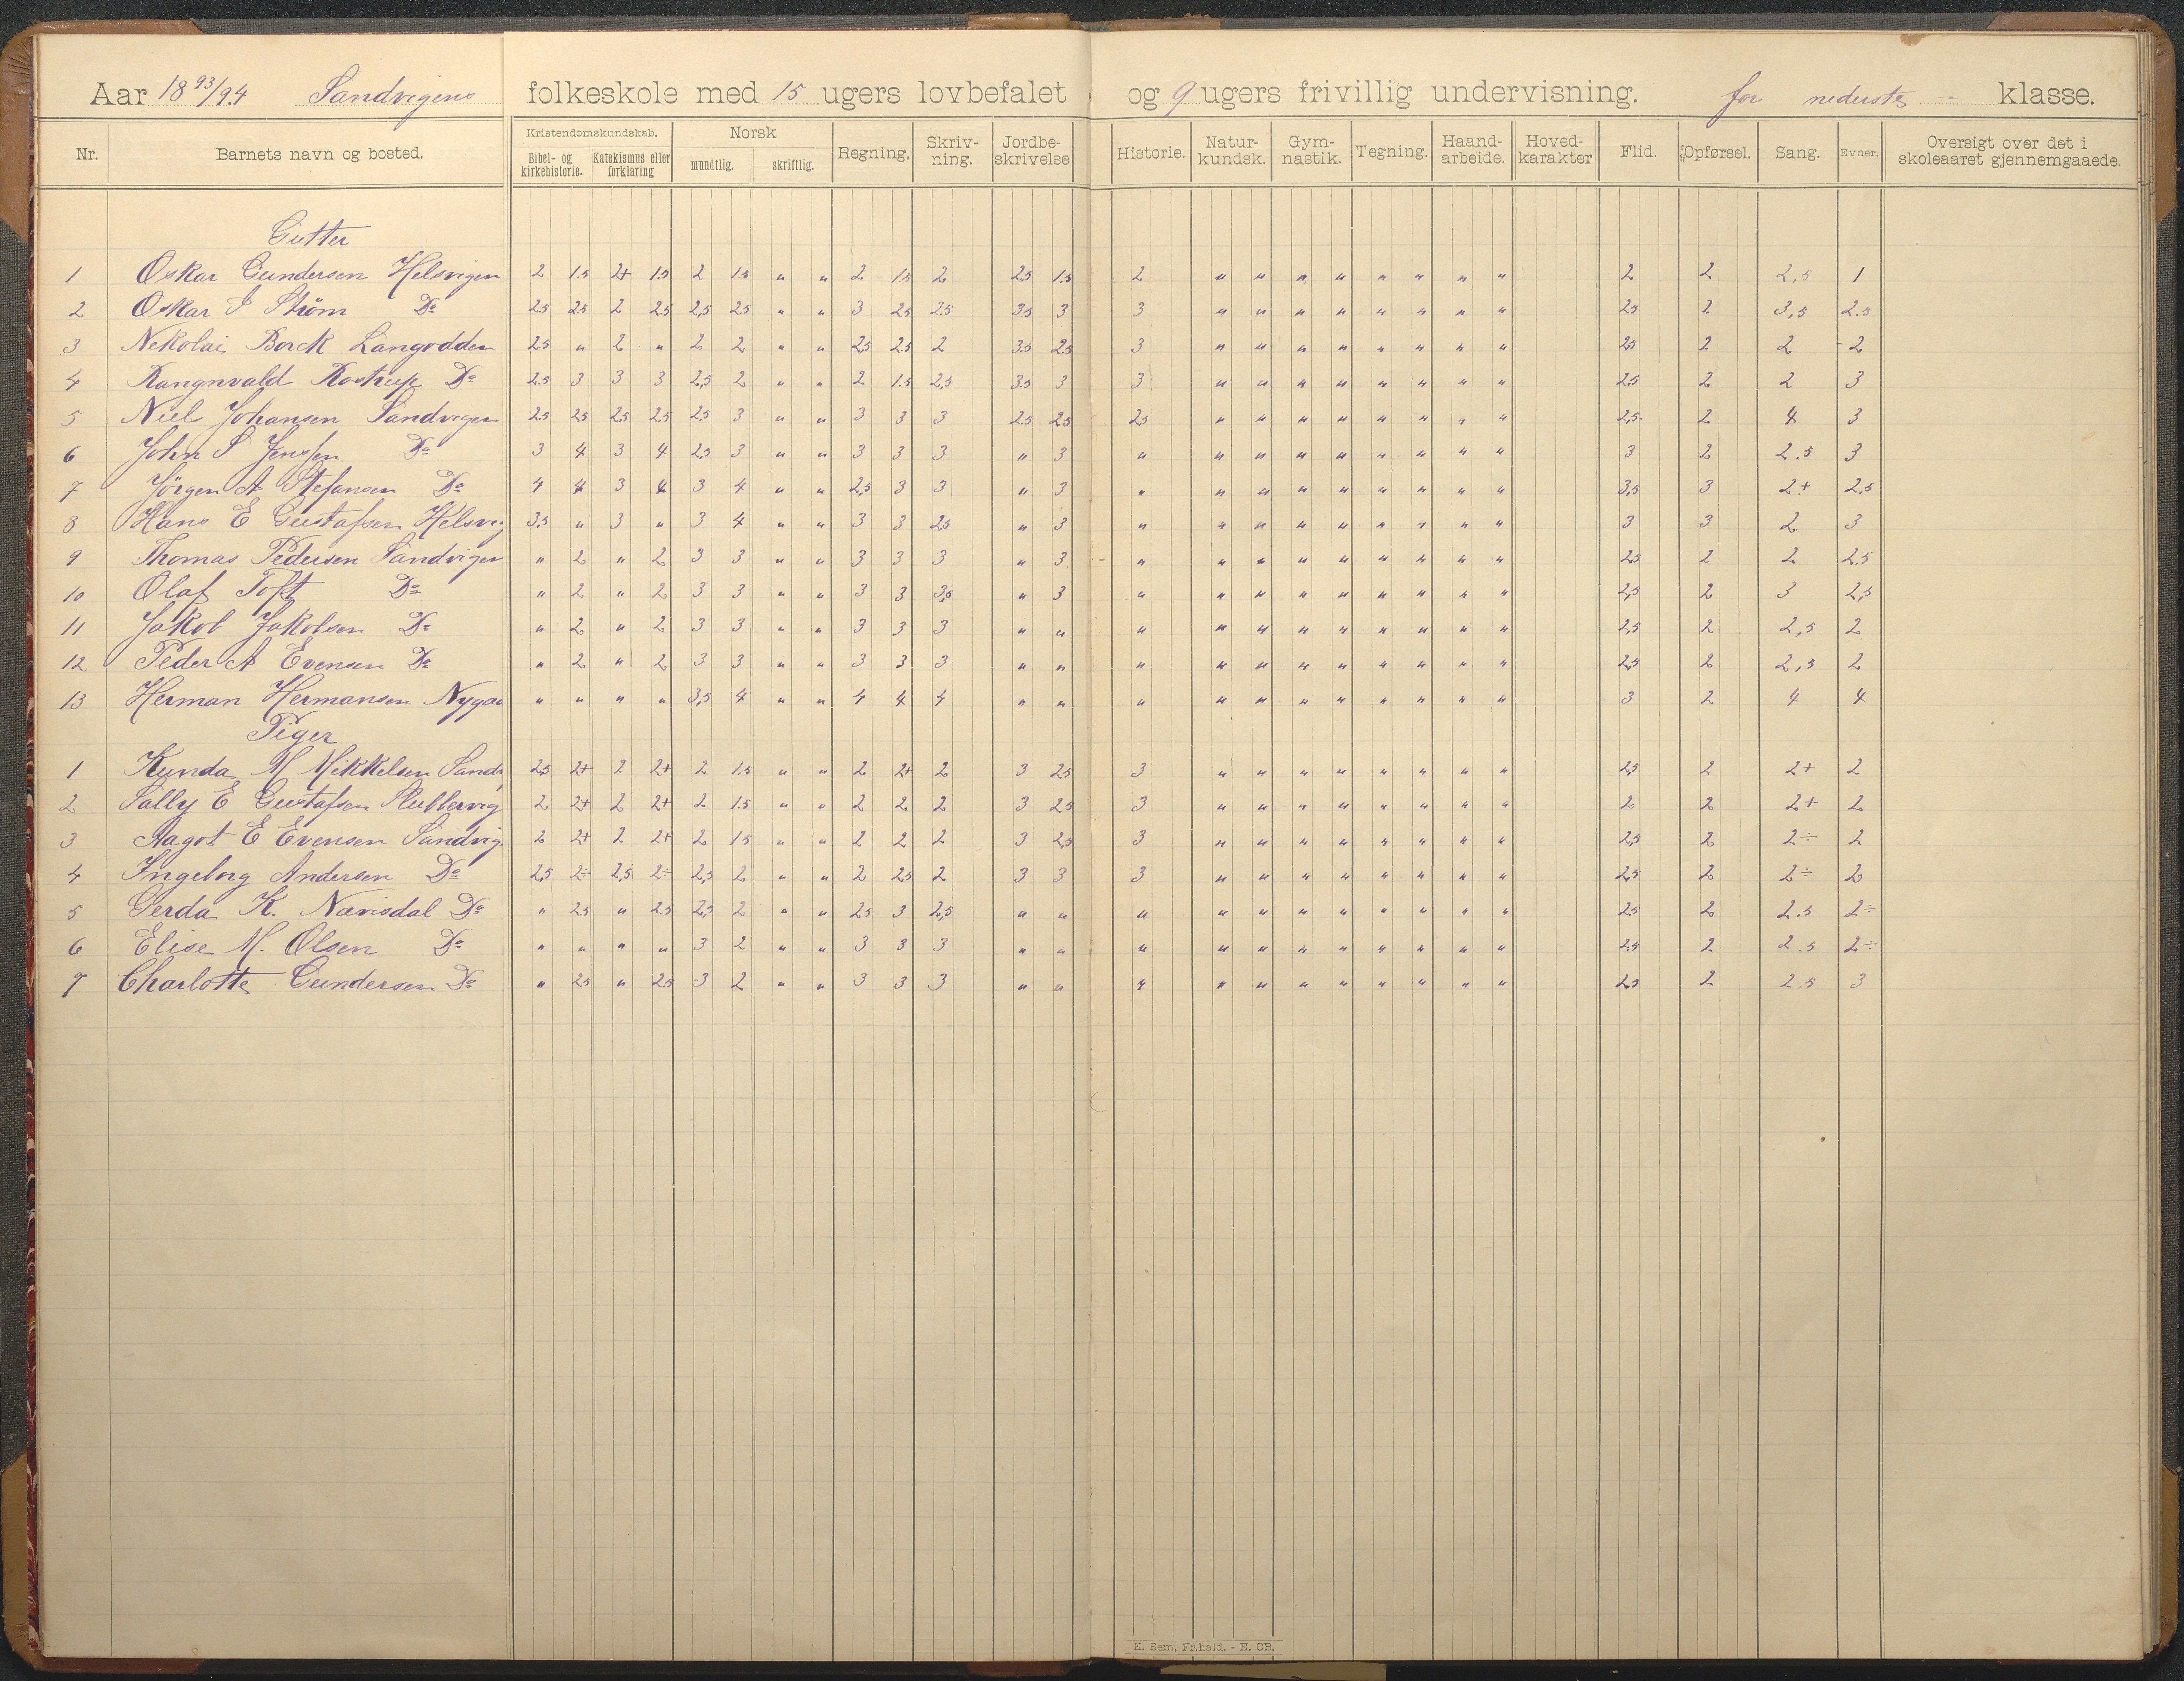 Aar 18 93/94 Sandvigens folkeskole med 15 ugers lovbefalet og 9 ugers frivillig undervisning. for nederste - klasse.
Nr. Barnets navn og bosted. Kristendomskundskab. Bibel- og kirkehistorie. Katekismus eller forklaring Norsk mundtlig. skriftlig. Regning. Skriv-ning. Jordbe-skrivelse Historie. Natur-kundsk. Gym-nastik. Tegning. Haand-arbeide. Hoved-karakter Flid. Opførsel. Sang. Evner. Oversigt over det i skoleaaret gjennemgaaede.
Gutter
1 Oskar Gundersen Helsvigen 2 1.5 2+ 1.5 2 1.5 " " 2 1.5 2 2.5 1.5 2 " " " " " " " " 2 2 2,5 1
2 Oskar S Strøm Do 2.5 2.5 2 2.5 2,5 2.5 " " 3 2.5 2.5 3.5 3 3 " " " " " " " " 2.5 2 3,5 2.5
3 Nekolai Borck Langodden 2.5 " 2 " 2 2 " " 2.5 2.5 2 3.5 2.5 3 " " " " " " " " 2.5 2 2 2
4 Rangnvald Rostrup Do 2.5 3 3 3 2,5 2 " " 2 1.5 2,5 3.5 3 3 " " " " " " " " 2.5 2 2 3
5 Niel Johansen Sandvigen 2.5 2.5 2.5 2.5 2.5 3 " " 3 3 3 2.5 2.5 2.5 " " " " " " " " 2,5 2 4 3
6 John S Jenssen Do 3 4 3 4 2.5 3 " " 3 3 3 " 3 " " " " " " " " " 3 2 2.5 3
7 Jörgen A Stefansen Do 4 4 3 4 3 4 " " 2,5 3 3 " 3 " " " " " " " " " 3,5 3 2+ 2,5
8 Hans E Gustafsen Helsvig 3.5 " 3 " 3 4 " " 3 3 2,5 " 3 " " " " " " " " " 3 3 2 3
9 Thomas Pedersen Sandvigen " 2 " 2 3 3 " " 3 3 3 " 3 " " " " " " " " " 2.5 2 2 2.5
10 Olaf Toft Do " 2 " 2 3 3 " " 3 3 3,5 " 3 " " " " " " " " " 2,5 2 3 2,5
11 Jakob Jakobsen Do " 2 " 2 3 3 " " 3 3 3 " " " " " " " " " " " 2,5 2 2,5 2
12 Peder A Evensen Do " 2 " 2 3 3 " " 3 3 3 " " " " " " " " " " " 2,5 2 2,5 2
13 Herman Hermansen Nygaa " " " " 3,5 4 " " 4 4 4 " " " " " " " " " " " 3 2 4 4
Piger
1 Kunda M Mikkelsen Sandv 2.5 2+ 2 2+ 2 1.5 " " 2 2+ 2 3 2.5 3 " " " " " " " " 2,5 2 2+ 2
2 Sally E Gustafsen Slubbervig 2 2+ 2 2+ 2 1.5 " " 2 2 2 3 2.5 3 " " " " " " " " 2 2 2+ 2
3 Aagot E Evensen Sandvig 2 2+ 2 2+ 2 1.5 " " 2 2 2 3 2,5 3 " " " " " " " " 2,5 2 2÷ 2
4 Ingeborg Andersen Do 2,5 2÷ 2,5 2÷ 2,5 2 " " 2 2.5 2 3 3 3 " " " " " " " " 2.5 2 2÷ 2
5 Gerda K. Nævisdal Do " 2.5 " 2.5 2,5 2 " " 2.5 3 2,5 " " " " " " " " " " " 2.5 2 2.5 2÷
6 Elise M. Olsen Do " " " " 3 2 " " 3 3 3 " " " " " " " " " " " 2.5 2 2.5 2÷
7 Charlotte Gundersen Do " 2.5 " 2.5 3 2 " " 3 3 3 " " " " " " " " " " " 2.5 2 2.5 3
E. Sem, Fr.hald. - E. CB.